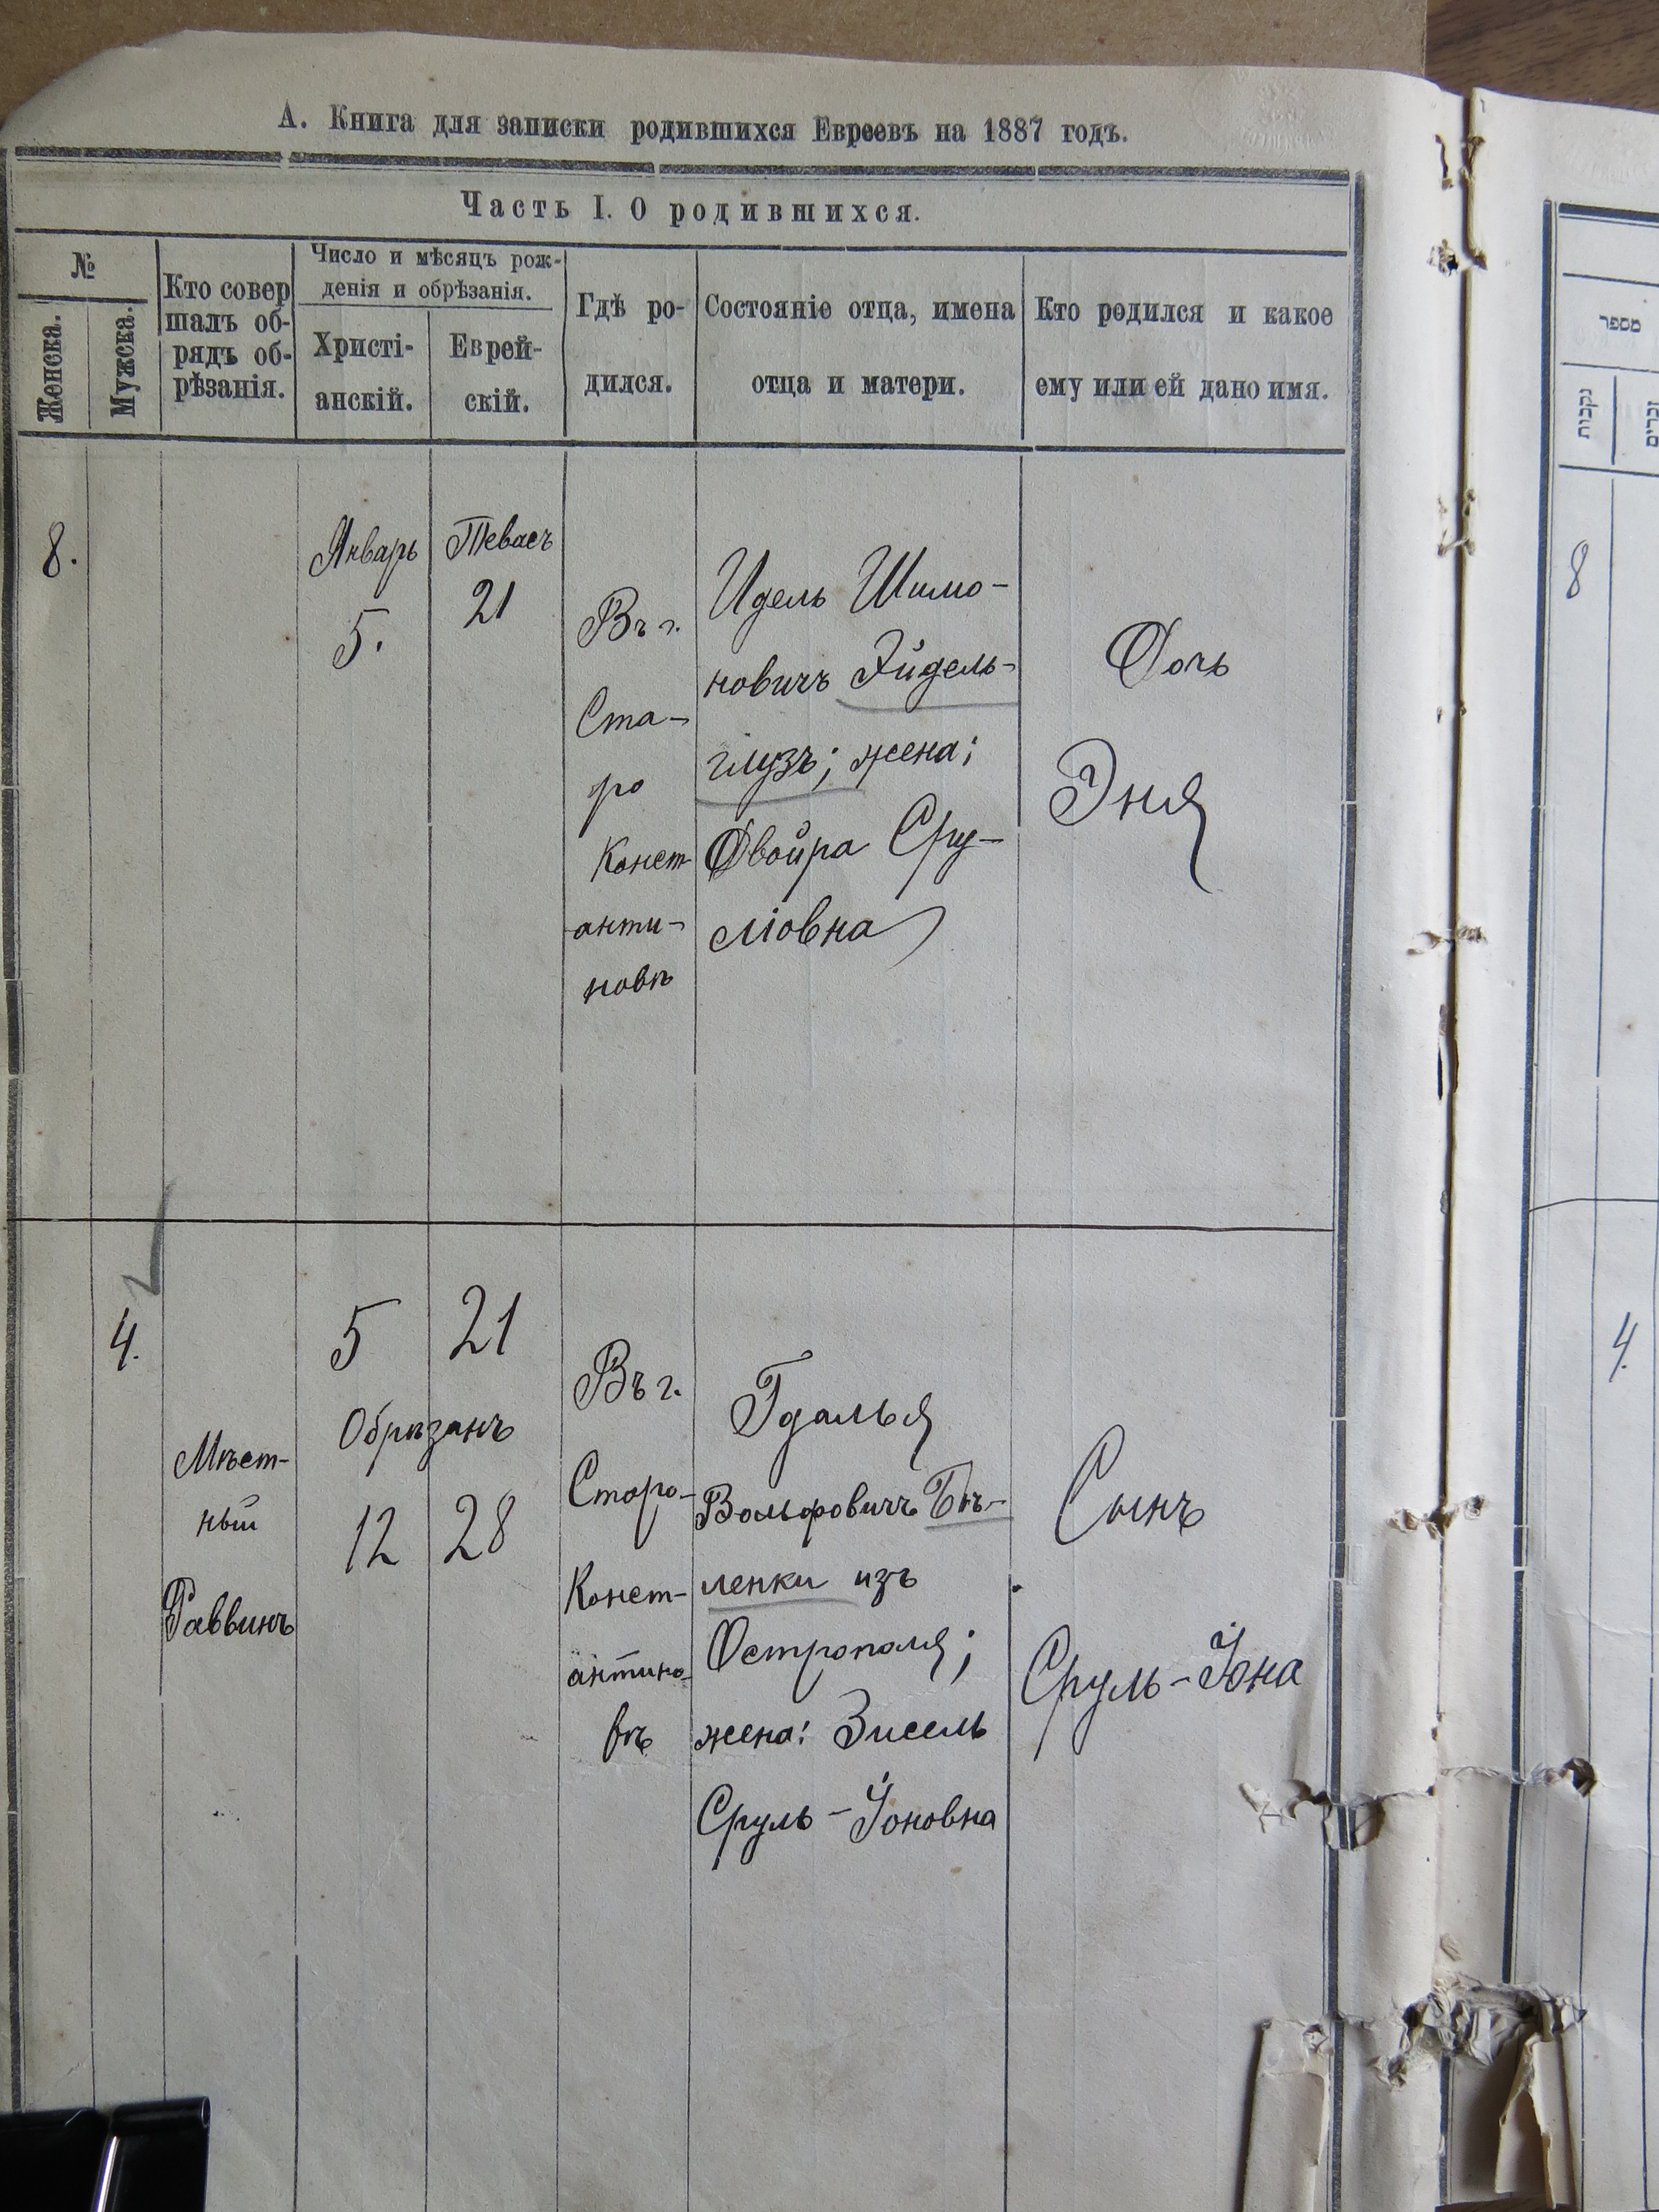 А. Книга для записки родившихся Евреевъ на 1887 годъ.
Часть I. О родившихся.
№
Женска.
Мужска.
Кто совер
шалъ об-
рядъ об-
рѣзанія.
Число и мѣсяцъ рож-
денія и обрѣзанія.
Христі-
анскій.
Еврей-
скій.
Гдѣ ро-
дился.
Состояніе отца, имена
отца и матери.
Кто родился и какое
ему или ей дано имя.
מספר
נקבות
זכרים
8.
Январь
5.
Тевасъ
21
Въ г.
Ста-
ро
Конст
анти-
новѣ
Идель Шимо-
новичъ Эйдель-
глузъ; жена;
Двойра Сру-
ліовна
Дочь
Эня
8
4.
Мѣст-
ный
Раввинъ
5 21
Обрѣзанъ
12 28
Въ г.
Старо-
Конст-
антино-
вѣ
Гдалья
Вольфовичъ Бѣ-
ленки изъ
Острополя;
жена: Зисель
Сруль-Іоновна
Сынъ
Сруль-Іона
4.